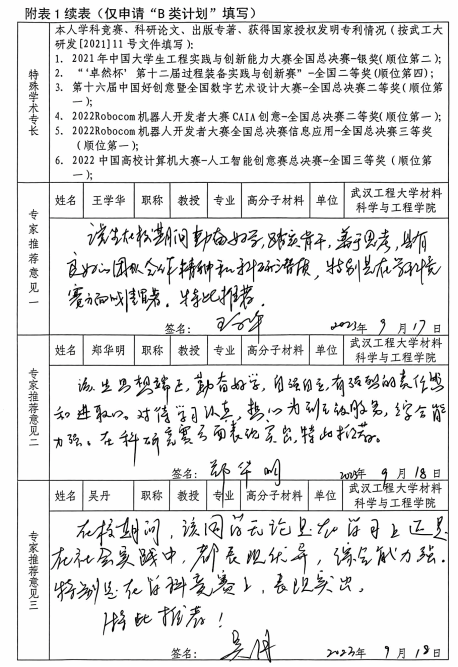 附表1续表（仅申请“B类计划”填写）
特殊学术专长
本人学科竞赛、科研论文、出版专著、获得国家授权发明专利情况（按武工大
研发[2021]11号文件填写）:
1. 2021年中国大学生工程实践与创新能力大赛全国总决赛-银奖(顺位二);
2. “‘卓然杯’第十二届过程装备实践与创新赛”-全国二等奖(顺位第四);
3. 第十六届中国好创意暨全国数字艺术设计大赛-全国总决赛二等奖(顺位第
一);
4. 2022Robocom机器人开发者大赛CAIA创意-全国总决赛二等奖(顺位第一);
5. 2022Robocom机器人开发者大赛全国总决赛信息应用-全国总决赛三等奖
(顺位第一);
6. 2022中国高校计算机大赛-人工智能创意赛总决赛-全国三等奖(顺位第
一);
专家推荐意见一
姓名 王学华 职称 教授 专业 高分子材料 单位 武汉工程大学材料
科学与工程学院
该生在校期间勤奋好学,踏实肯干,善于思考,具有
良好的团队合作精神和科研潜质,特别是在学科竞
赛方面成绩显著。特此推荐。
签名: 王学华 2023年9月17日
专家推荐意见二
姓名 郑华明 职称 教授 专业 高分子材料 单位 武汉工程大学材料
科学与工程学院
该生思想端正,勤奋好学,自强自立,有强烈的责任感
和进取心。对待学习认真,热心为同学服务,综合能
力强。在科研竞赛方面表现突出,特此推荐。
签名: 郑华明 2023年9月18日
专家推荐意见三
姓名 吴丹 职称 教授 专业 高分子材料 单位 武汉工程大学材料
科学与工程学院
在校期间,该同学无论是在学习上还是
在社会实践中,都表现优异,综合能力强。
特别是在学科竞赛上,表现突出。
特此推荐!
签名: 吴丹 2023年9月18日